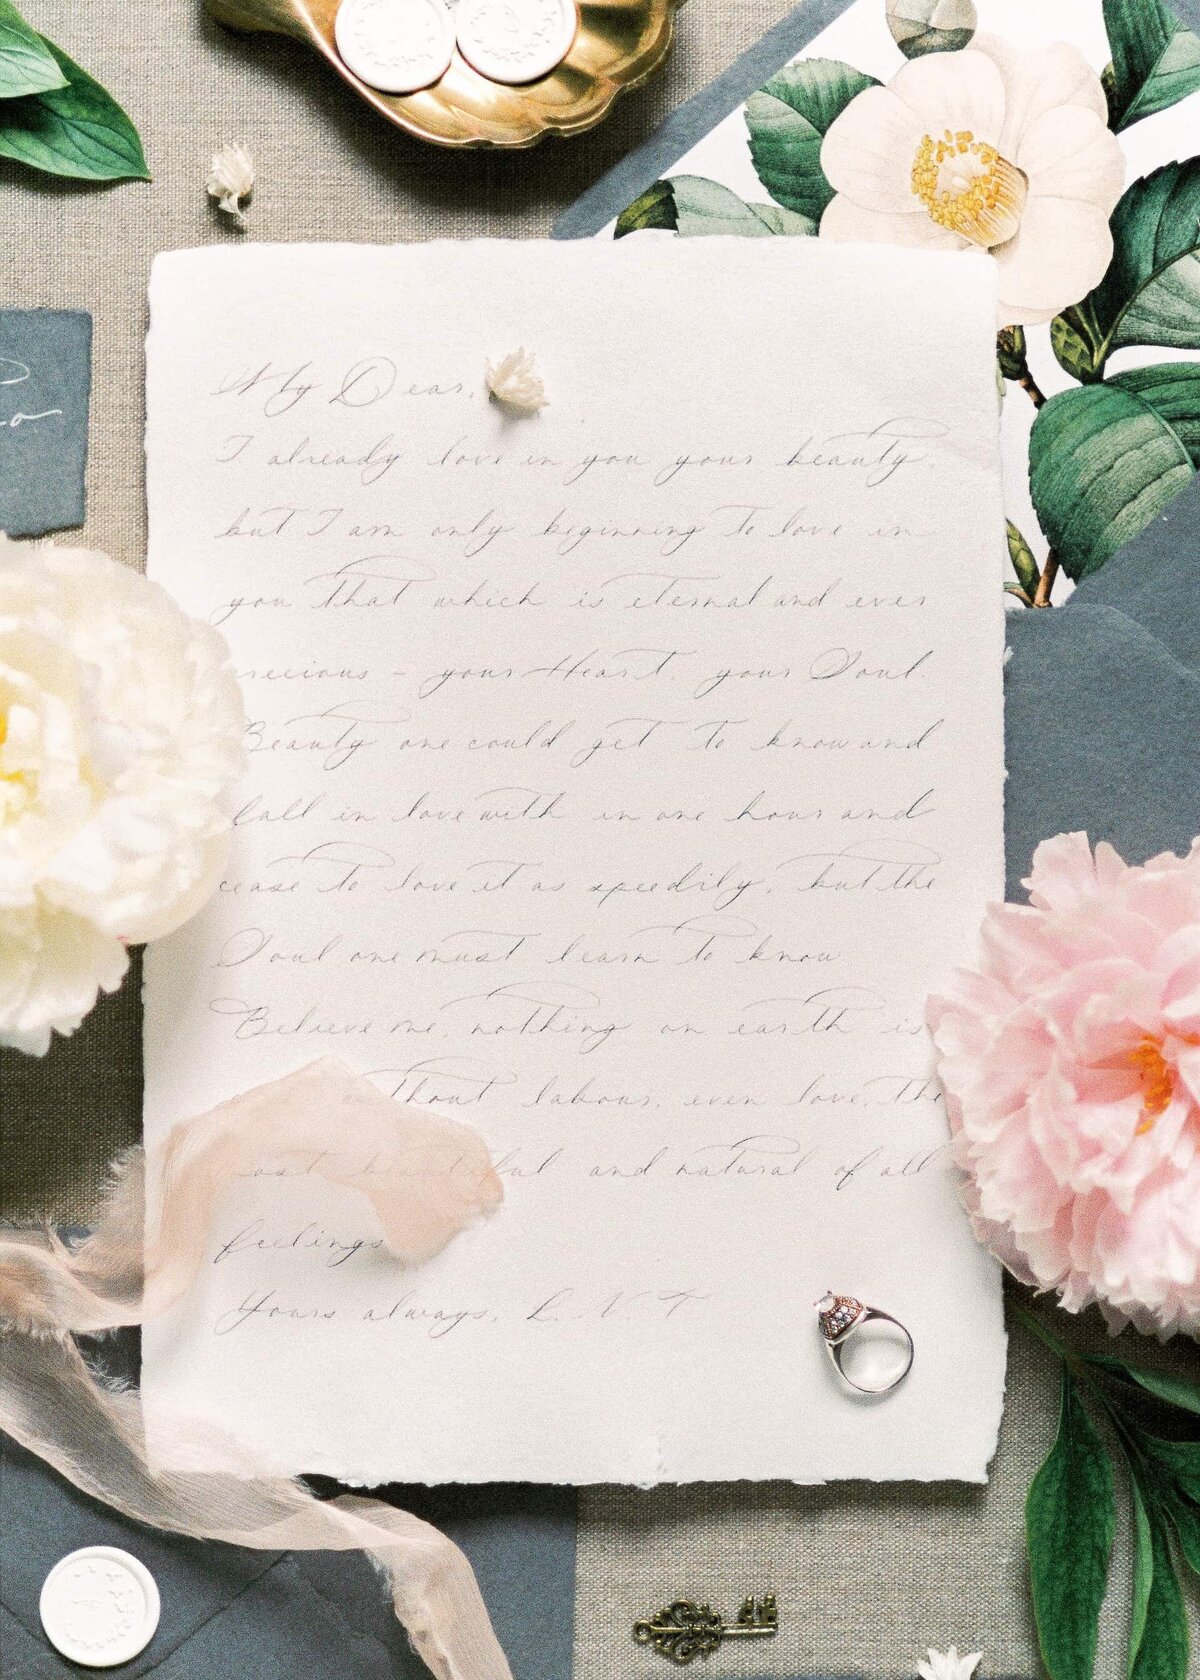 My Dear,
I already love in you your beauty,
but I am only beginning to love in
you that which is eternal and ever
precious - your Heart, your Soul.
Beauty one could get to know and
fall in love with in one hour and
cease to love it as speedily, but the
Soul one must learn to know
Believe me, nothing on earth is
without labour, even love, the
most beautiful and natural of all
feelings
Yours always, L. N. T